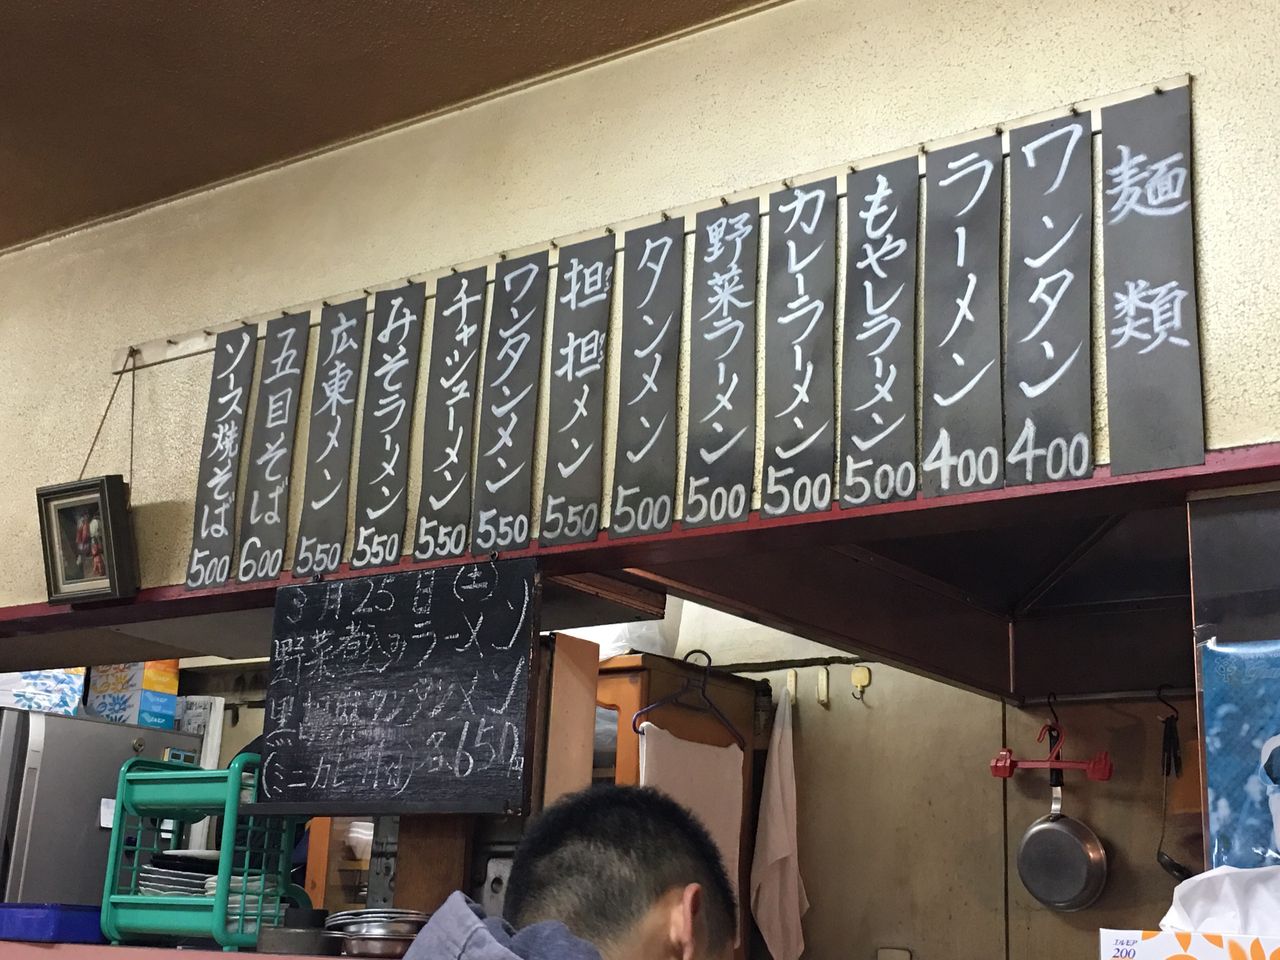 麺類
ワンタン 400
ラーメン 400
もやしラーメン 500
カレーラーメン 500
野菜ラーメン 500
タンメン 500
担担メン 550
ワンタンメン 550
チャシューメン 550
みそラーメン 550
広東メン 550
五目そば 600
ソース焼そば 500
3月25日(土)
野菜煮込みラーメン
タンメン
(ミニカレー付) 650
エルモア
200